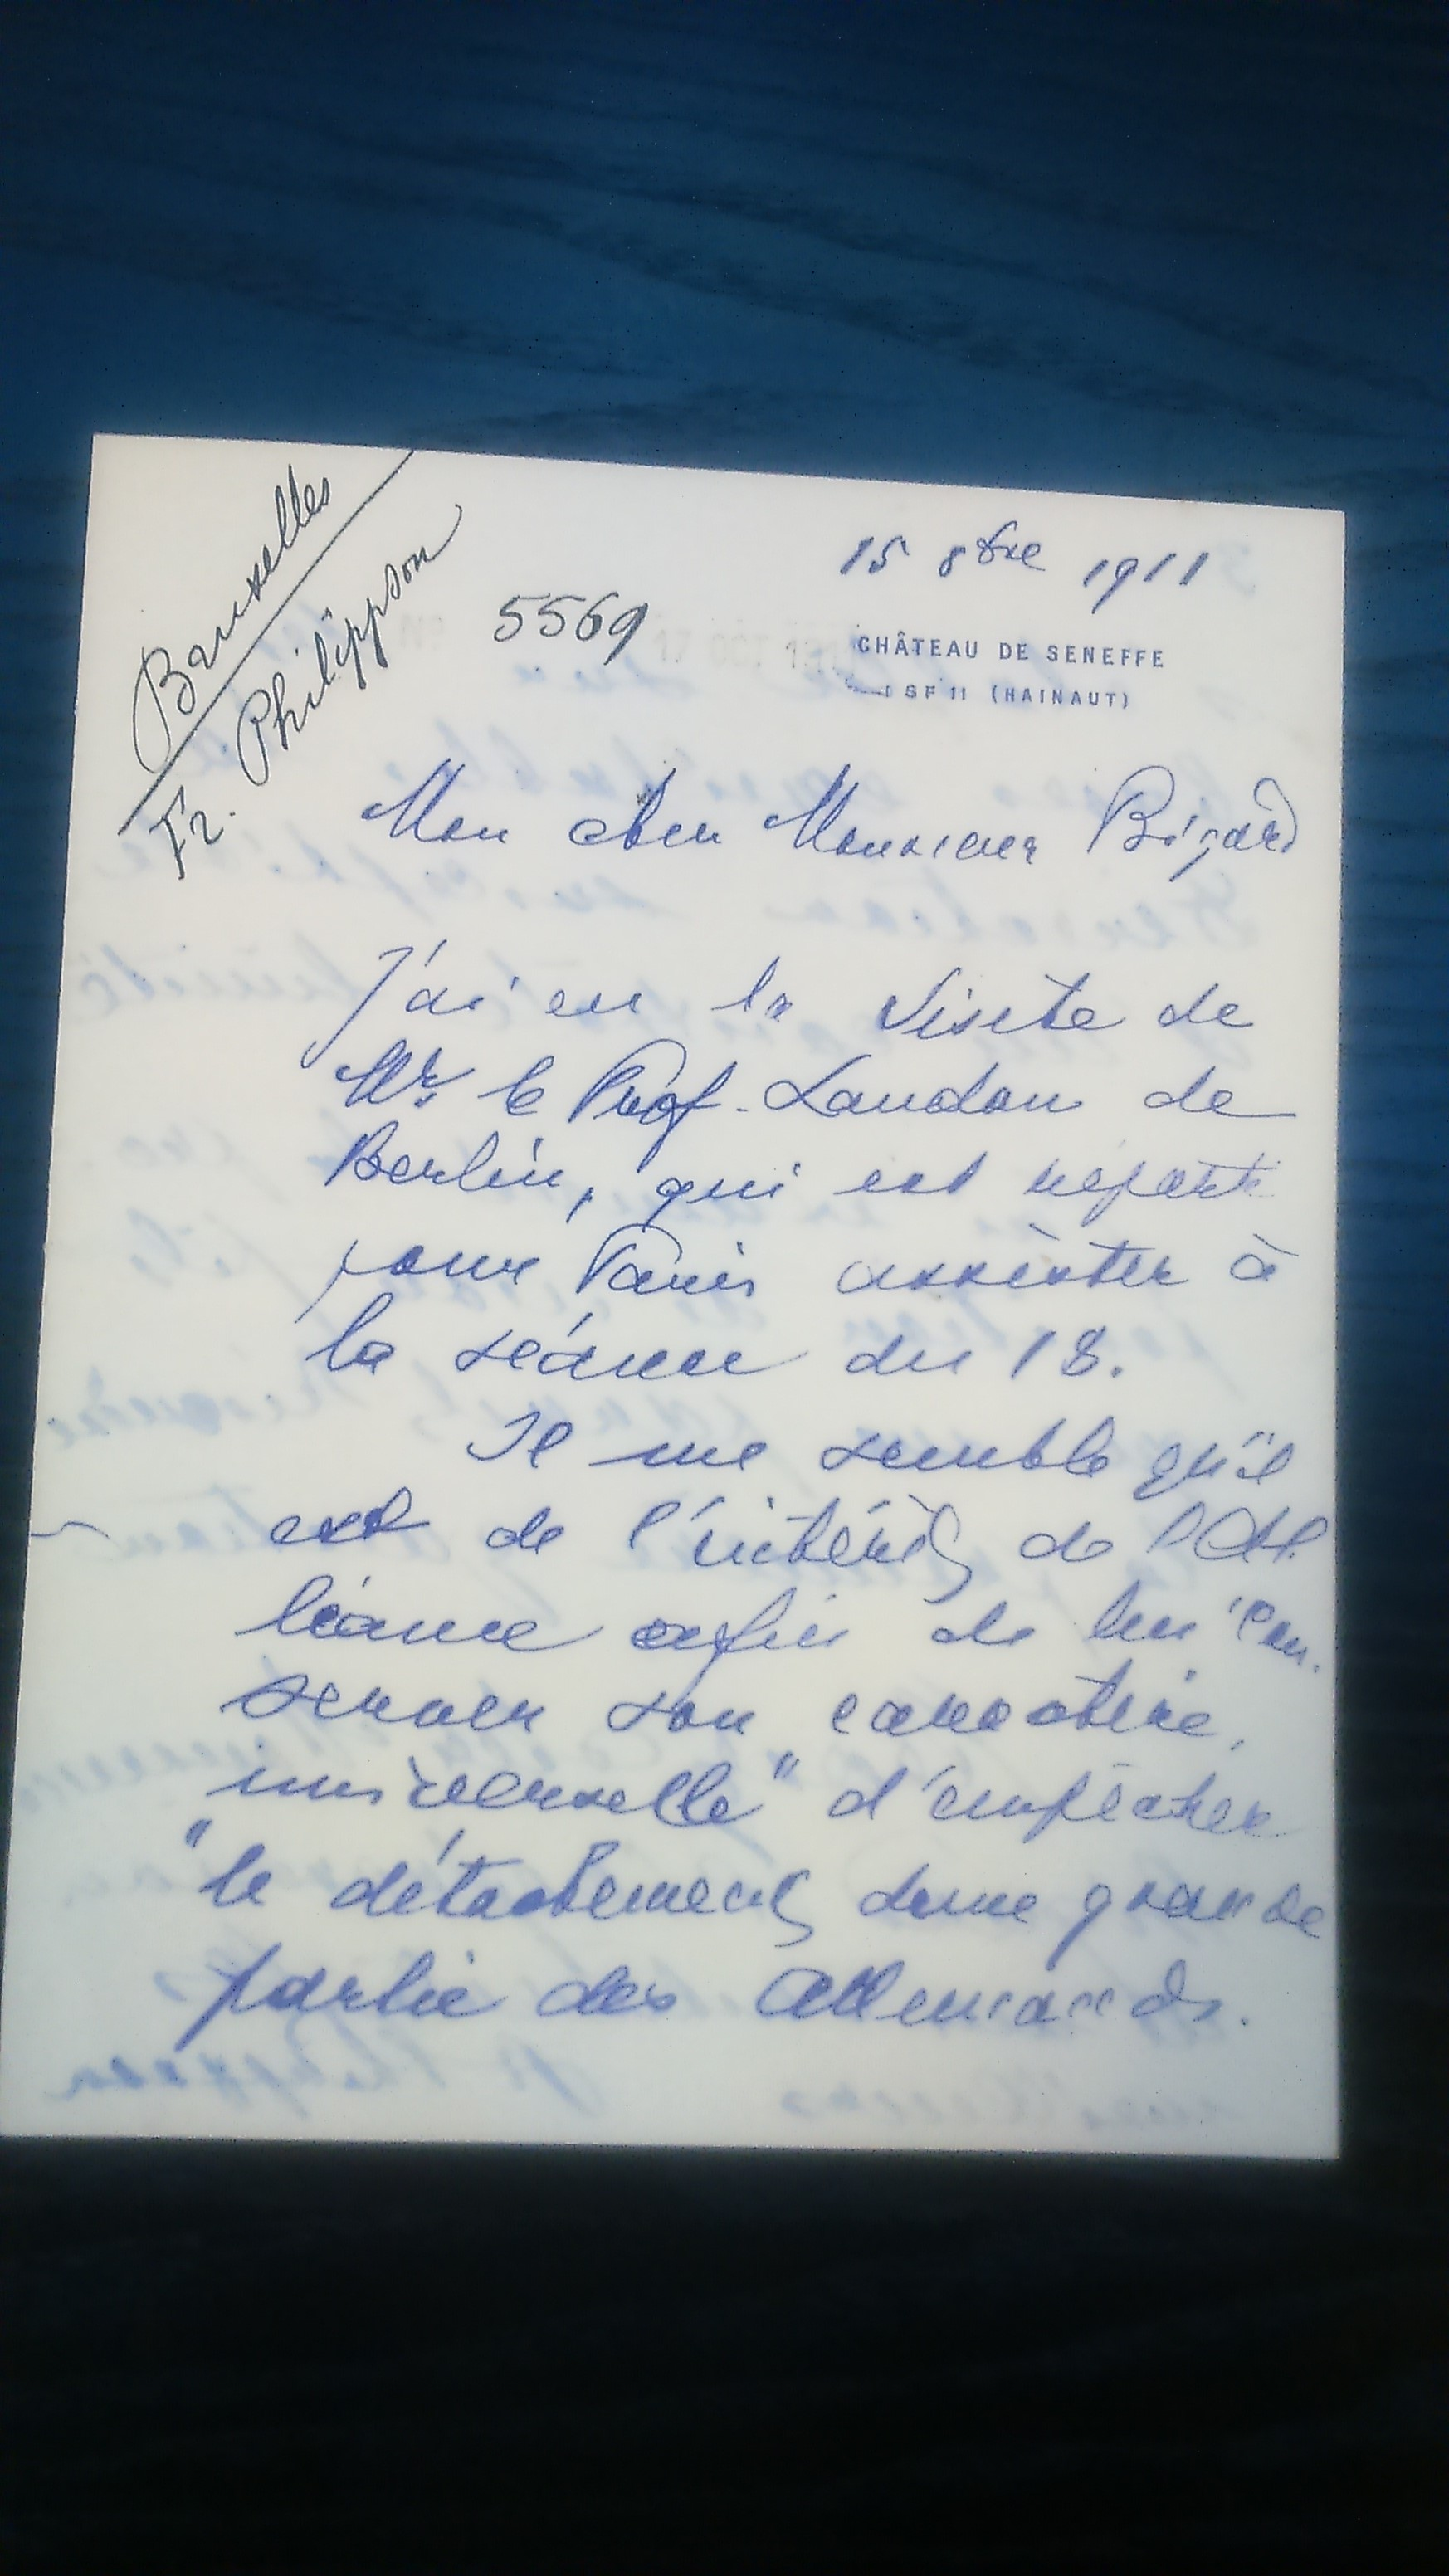 Bruxelles
Fr. Philippson
15 8bre 1911
5569
17 OCT 191
CHÂTEAU DE SENEFFE
(HAINAUT)
Mon cher Monsieur Bigard
J'ai eu la visite de
Mr le Prof. Landau de
Berlin, qui est reparti
pour Paris assister à
la séance du 18.
Il me semble qu'il
est de l'intérêt de l'Al
liance afin de lui con-
server son caractère
universelle" d'empêcher
"le détachement d'une grande
partie des Allemands.